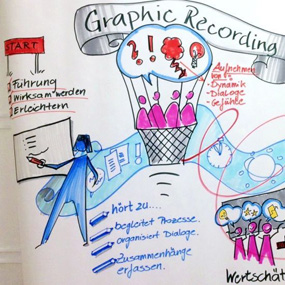 Graphic Recording
START
Führung
Wirksam werden
Erleichtern
? !
Aufnehmen
von:
- Dynamik
- Dialoge
- Gefühle
hört zu....
begleitet Prozesse.
organisiert Dialoge.
Zusammenhänge
erfassen.
Wertschät